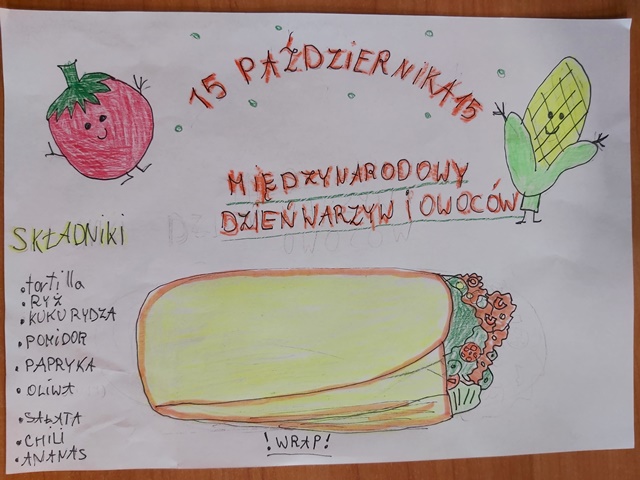 15 PAŹDZIERNIKA 15
MIĘDZYNARODOWY
DZIEŃ NARZYW i OWOCÓW
SKŁADNIKI
• tortilla
• RYŻ
• KUKURYDZA
• POMIDOR
• PAPRYKA
• OLIWA
• SAŁATA
• CHILI
• ANANAS
! WRAP !